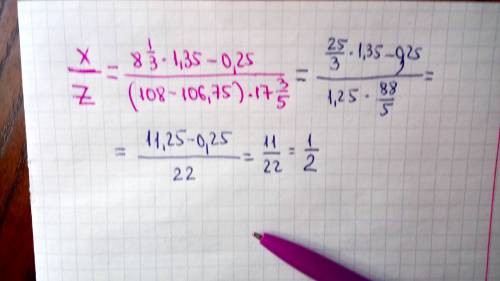 x/z = (8 1/3 · 1,35 − 0,25)/((108 − 106,75) · 17 3/5) = (25/3 · 1,35 − 0,25)/(1,25 · 88/5) =
= (11,25 − 0,25)/22 = 11/22 = 1/2